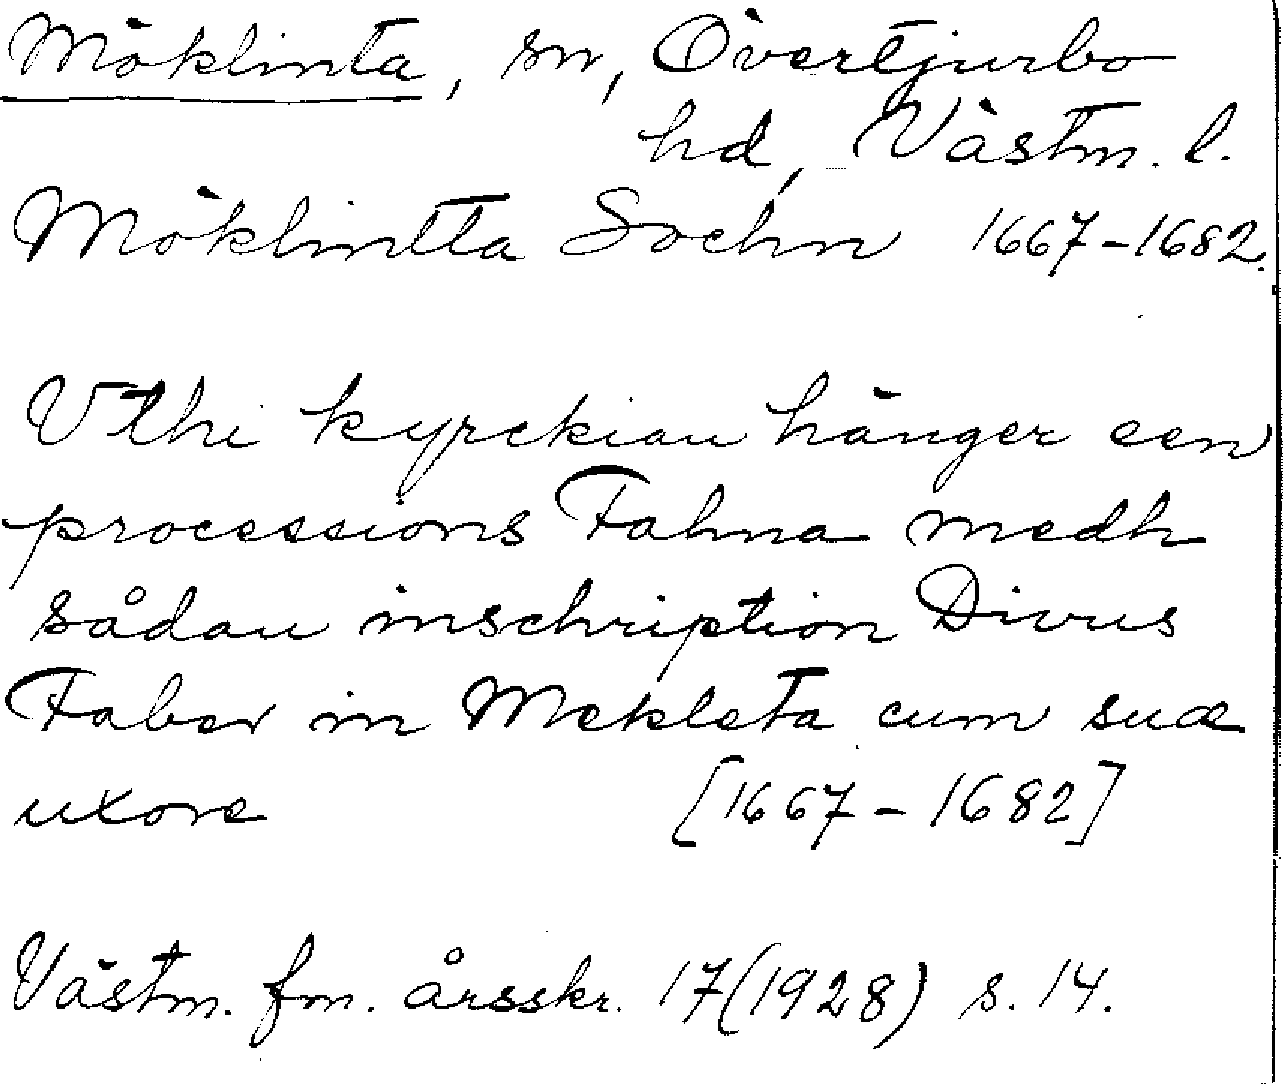 Möklinta, sn, Övertjurbo
hd, Västm. l.
Möklintta Sochn 1667-1682.
Vthi kyrckian hänger een
processions Fahna medh
sådan inschription Divus
Faber in Mekleta cum suæ
uxore [1667-1682]
Västm. fm. årsskr. 17(1928) s. 14.